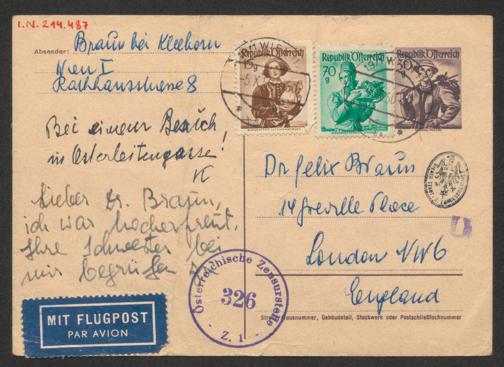 I.N. 214.487
Absender: Braun bei Kleehorn
Wien I
Rathhausstrasse 8
Bei einem Besuch
in Osterleitengasse!
Lieber Dr. Braun,
ich war hocherfreut,
Ihre Schwester bei
mir begrüßen
MIT FLUGPOST
PAR AVION
WIEN
Republik Österreich
Republik Österreich
70 g
Republik Österreich
30
Dr Felix Braun
14 Greville Place
London NW6
England
Österreichische Zensurstelle
326
Z. 1
Straße, Hausnummer, Gebäudeteil, Stockwerk oder Postschließfachnummer